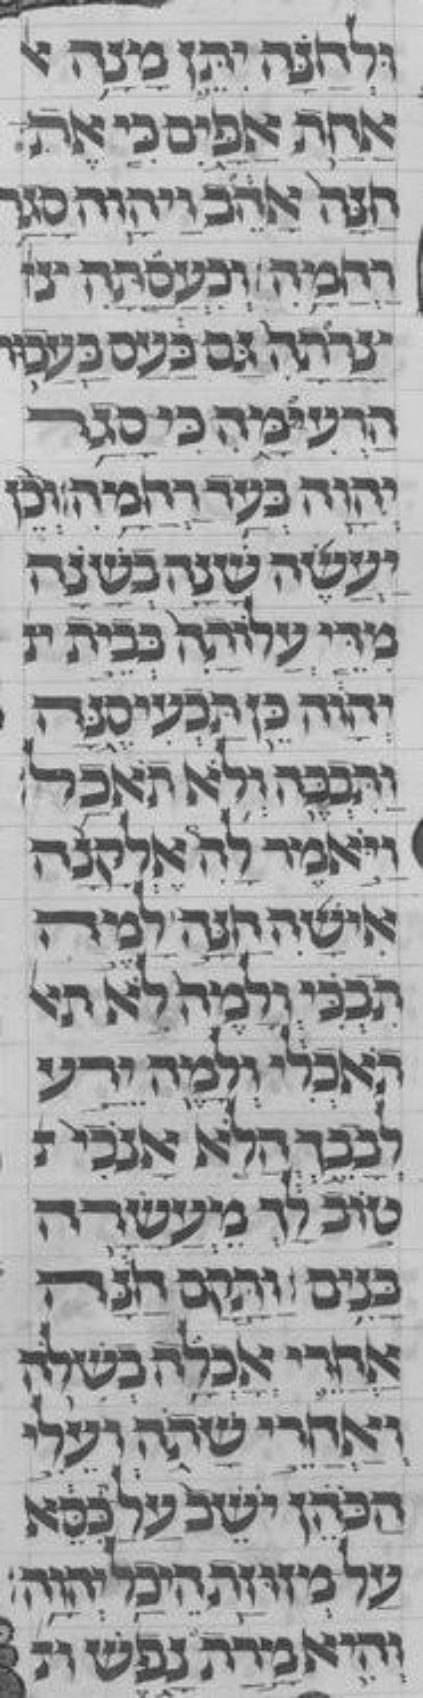 וּלְחַנָּה יִתֵּן מָנָה א
אַחַת אַפָּיִם כִּי אֶת
חַנָּה אָהֵב וַיהוָה סָגַר
רַחְמָהּ׃ וְכִעֲסַתָּה צי
צָרָתָהּ גַּם כַּעַס בַּעֲבוּר
הַרְּעִימָהּ כִּי סָגַר
יְהוָה בְּעַד רַחְמָהּ׃ וְכֵן
יַעֲשֶׂה שָׁנָה בְשָׁנָה
מִדֵּי עֲלוֹתָהּ בְּבֵית ית
יְהוָה כֵּן תַּכְעִיסֶנָּה
וַתִּבְכֶּה וְלֹא תֹאכַל׃
וַיֹּאמֶר לָהּ אֶלְקָנָה
אִישָׁהּ חַנָּה לָמֶה
תִבְכִּי וְלָמֶה לֹא תא
תֹאכְלִי וְלָמֶה יֵרַע
לְבָבֵךְ הֲלֹא אָנֹכִי ט
טוֹב לָךְ מֵעֲשָׂרָה
בָּנִים׃ וַתָּקָם חַנָּה
אַחֲרֵי אָכְלָה בְשִׁלֹה
וְאַחֲרֵי שָׁתֹה וְעֵלִי
הַכֹּהֵן יֹשֵׁב עַל כִּסֵּא
עַל מְזוּזַת הֵיכַל יְהוָה׃
וְהִיא מָרַת נָפֶשׁ ות